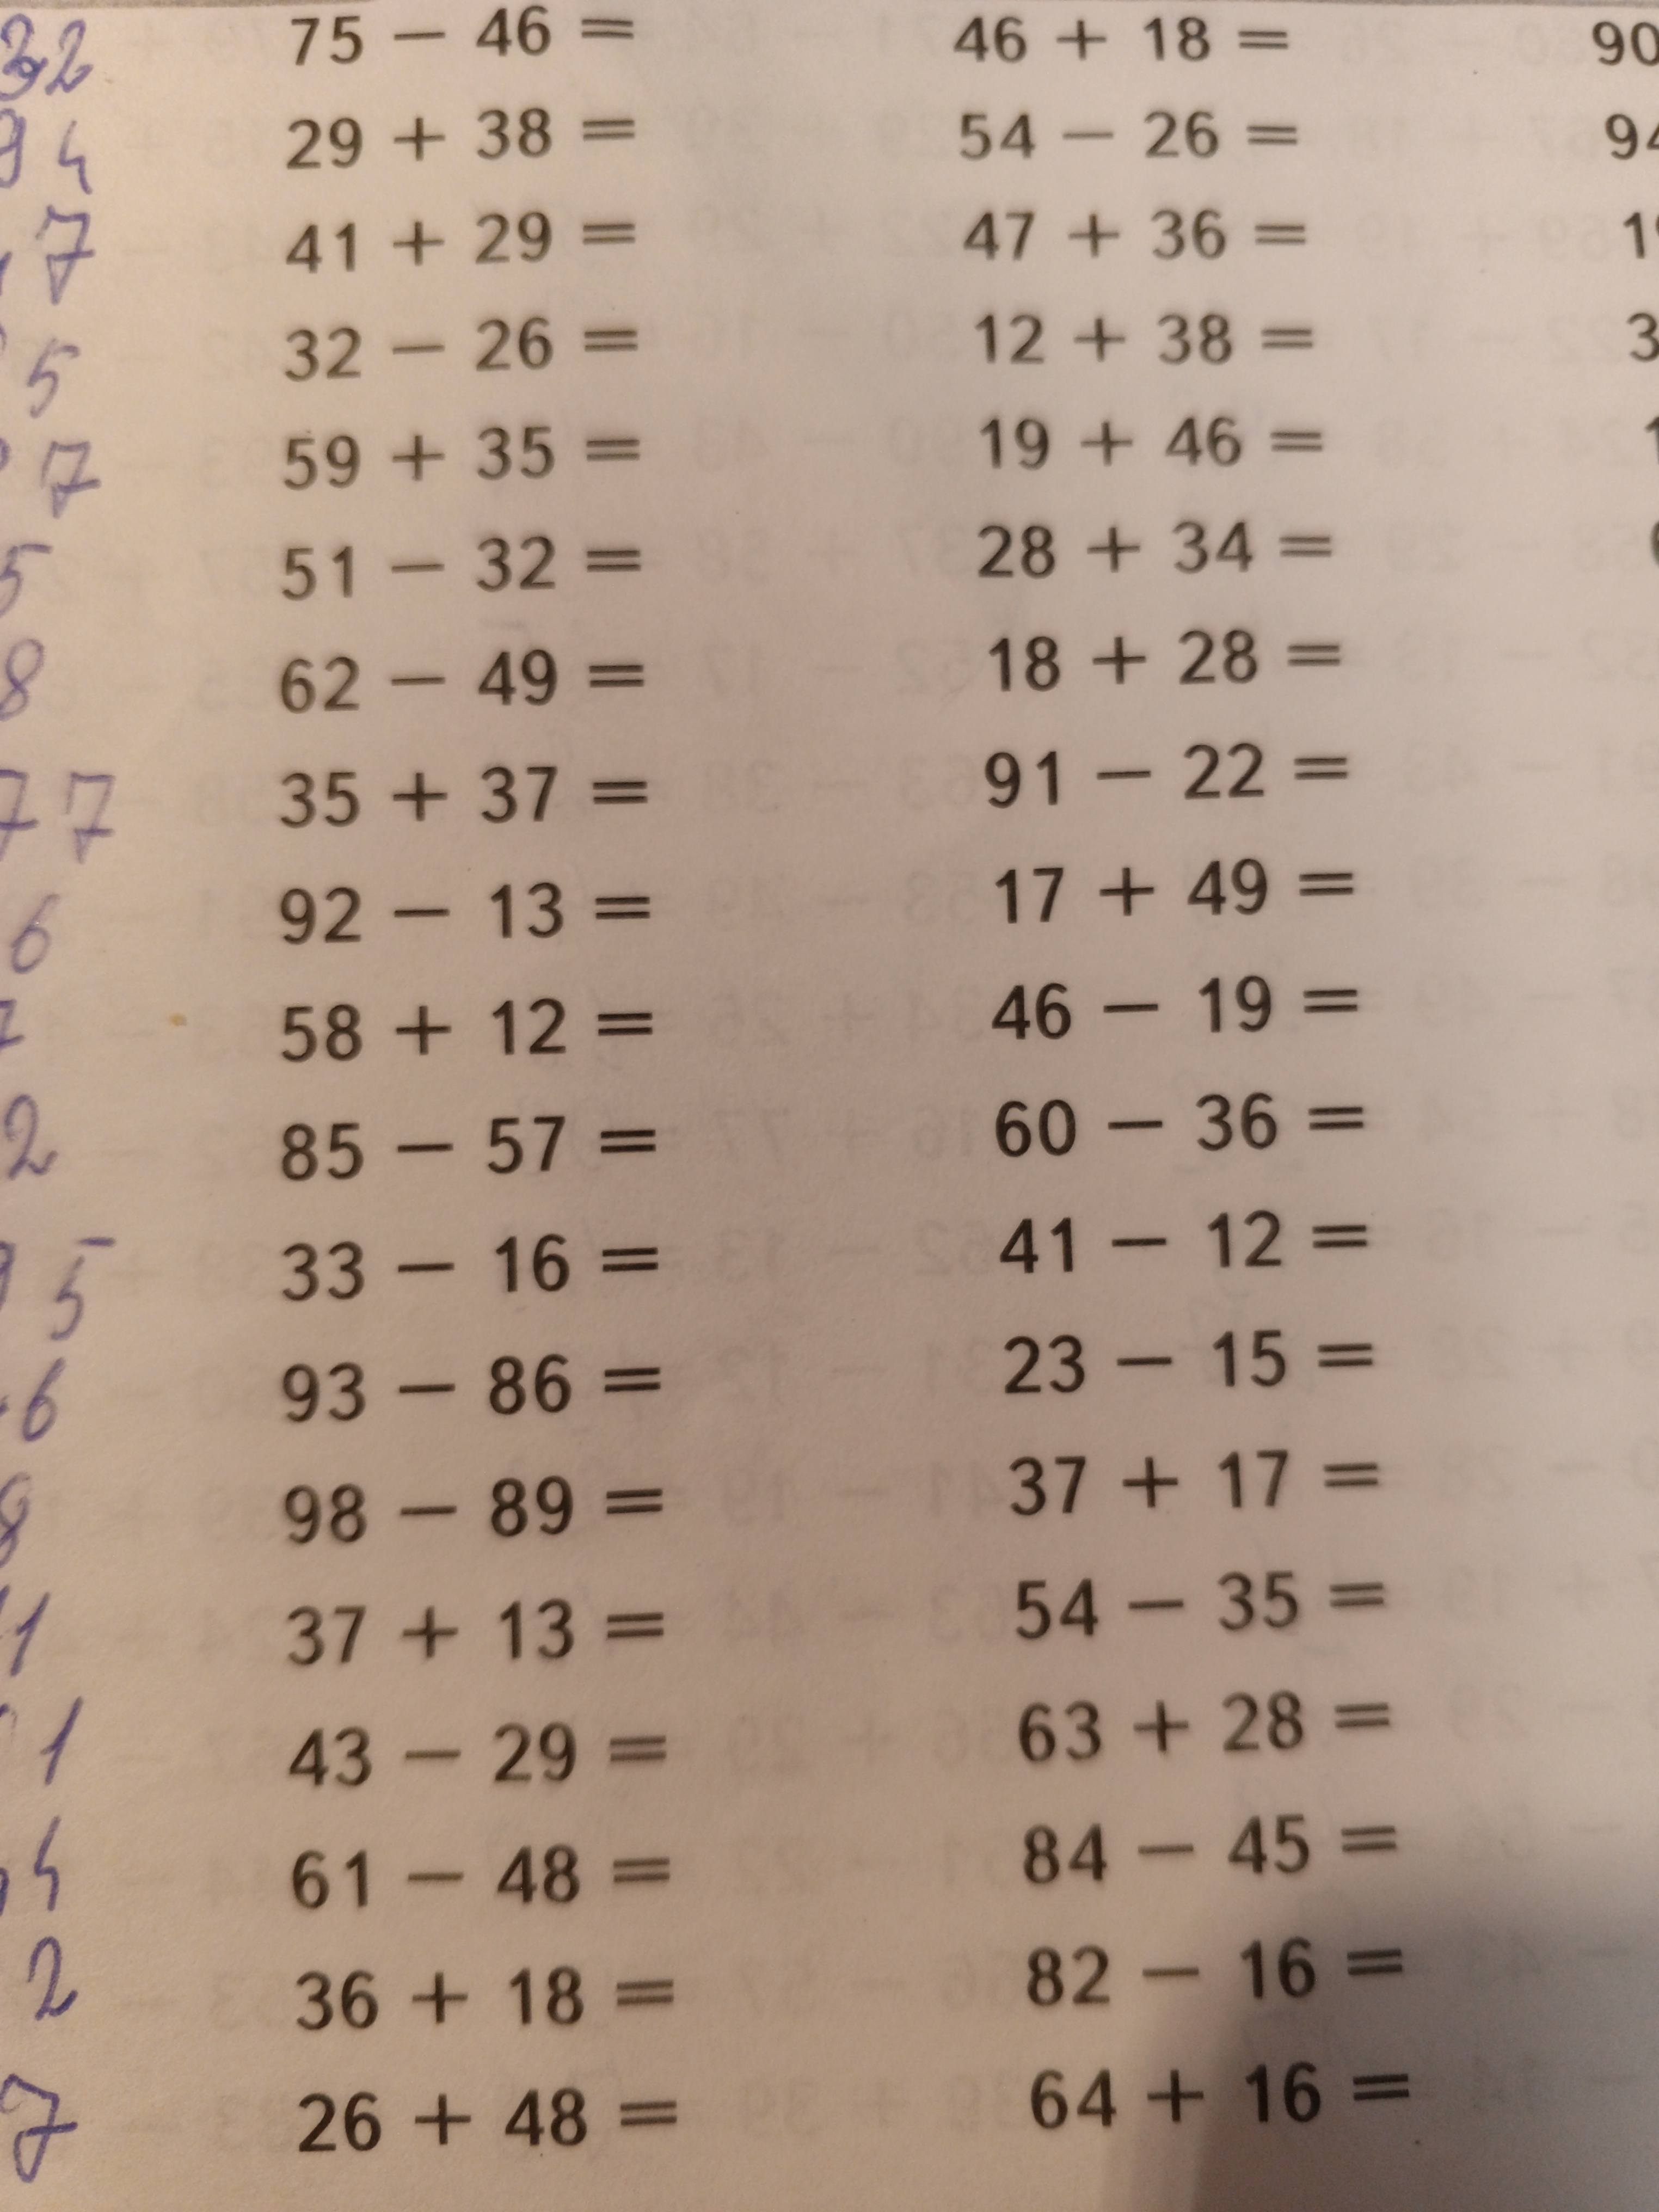 32 75 − 46 = 46 + 18 = 90
94 29 + 38 = 54 − 26 = 94
7 41 + 29 = 47 + 36 =
5 32 − 26 = 12 + 38 = 3
7 59 + 35 = 19 + 46 =
5 51 − 32 = 28 + 34 =
8 62 − 49 = 18 + 28 =
77 35 + 37 = 91 − 22 =
6 92 − 13 = 17 + 49 =
58 + 12 = 46 − 19 =
2 85 − 57 = 60 − 36 =
5 33 − 16 = 41 − 12 =
6 93 − 86 = 23 − 15 =
98 − 89 = 37 + 17 =
1 37 + 13 = 54 − 35 =
1 43 − 29 = 63 + 28 =
4 61 − 48 = 84 − 45 =
2 36 + 18 = 82 − 16 =
7 26 + 48 = 64 + 16 =